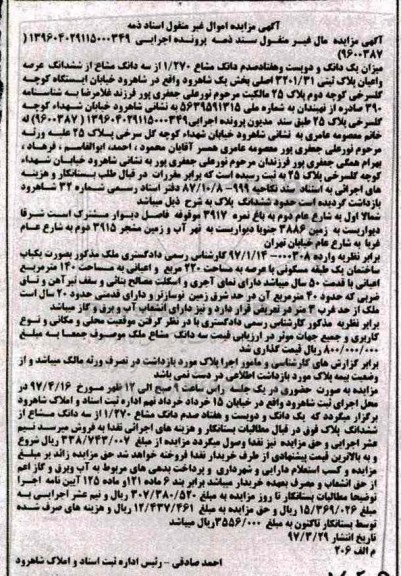 آگهی مزایده اموال غیر منقول اسناد ذمه
آگهی مزایده مال غیر منقول سند ذمه پرونده اجرایی ۱۳۹۶۰۴۰۲۹۱۱۵۰۰۰۳۴۹ (
۹۶۰۰۳۸۷ )
میزان یک دانگ و دویست وهفتادصدم دانگ مشاع ۱/۲۷۰ از سه دانگ مشاع از ششدانگ عرصه
واعیان پلاک ثبتی ۳۲۰۱/۳۱ اصلی بخش یک شاهرود واقع در شاهرود خیابان ایستگاه کوچه
گلسرخی کوچه دوم پلاک ۲۵ مالکیت مرحوم نورعلی جعفری پور فرزند غلامرضا به شناسنامه
۳۹۰ صادره از نهبندان به شماره ملی ۵۶۳۹۵۹۱۳۱۵ به نشانی شاهرود خیابان شهداء کوچه
گلسرخی پلاک ۲۵ طبق سند مدیون پرونده اجرایی ۱۳۹۶۰۴۰۲۹۱۱۵۰۰۰۳۴۹ ( ۹۶۰۰۳۸۷ ) له
خانم معصومه عامری به نشانی شاهرود خیابان شهداء کوچه گل سرخی پلاک ۲۵ علیه ورثه
مرحوم نورعلی جعفری پور معصومه عامری همسر آقایان محمود ، احمد، ابوالقاسم ، فرهاد ،
بهرام همگی جعفری پور فرزندان مرحوم نورعلی جعفری پور به نشانی شاهرود خیابان شهداء
کوچه گلسرخی پلاک ۲۵ به ثبت رسیده است که برابر مقررات در قبال طلب بستانکار و هزینه
های اجرائی به استناد سند نکاحیه ۹۹۹- ۸۷/۱۰/۸ دفتر اسناد رسمی شماره ۳۲ شاهرود
بازداشت گردیده است حدود ششدانگ پلاک به شرح ذیل میباشد
شمالا اول به شارع عام دوم به باغ نمره ۳۹۱۷ موقوفه فاصل دیوار مشترک است شرقا
دیواریست به زمین ۳۸۸۶ جنوبا دیواریست به نهر آب و زمین مشجر ۳۹۱۵ دوم به شارع عام
غربا به شارع عام خیابان تهران
برابر نظریه وارده ۰۰۰۳۰۸-۹۷/۱/۱۴ کارشناس رسمی دادگستری ملک مذکور بصورت یکباب
ساختمان یک طبقه مسکونی با عرصه به مساحت ۲۲۰ مربع و اعیانی به مساحت ۱۴۰ مترمربع
اعیانی با قدمت ۵۰ سال میباشد دارای نمای آجری و اسکلت مصالح بنائی و سقف تیرآهن و تای
ضربی که حدود ۴۰ مترمربع آن در حد شرق زمین نوسازتر و دارای قدمتی حدود ۲۰ سال است
ملک از حد غرب ۳ متر در تعریض قرار دارد و نیز دارای انشعاب آب و برق و گاز میباشد
برابر نظریه مذکور کارشناس رسمی دادگستری با در نظر گرفتن موقعیت محلی و مکانی و نوع
کاربری و جمیع جهات موثر در ارزیابی قیمت سه دانگ مشاع ملک موصوف جمعا به مبلغ
۸۰۰/۰۰۰/۰۰۰ ریال قیمت گذاری شد
برابر گزارش های کارشناسی و مامور اجرا پلاک مورد بازداشت در تصرف ورثه مالک میباشد و از
وضعیت بیمه پلاک مورد بازداشت اطلاعی در دست نمی باشد
مزایده به صورت حضوری در یک جلسه راس ساعت ۹ صبح الی ۱۲ ظهر مورخ ۹۷/۴/۱۶ در
محل اجرای ثبت شاهرود واقع در خیابان ۱۵ خرداد خرداد نهم اداره ثبت اسناد و املاک شاهرود
برگزار میگردد که یک دانگ و دویست و هفتاد صدم دانگ مشاع ۱/۲۷۰ از سه دانگ مشاع از
ششدانگ پلاک فوق در قبال مطالبات بستانکار و هزینه های اجرائی نقدا به فروش میرسد نیم
عشر اجرایی و حق مزایده نیز نقدا وصول میگردد مزایده از مبلغ ۳۳۸/۷۴۳/۰۰۷ ریال شروع
و به بالاترین قیمت پیشنهادی از طرف خریدار نقدا فروخته خواهد شد حق مزایده زائد بر مبلغ
مزایده و کسب استعلام دارایی و شهرداری و پرداخت بدهی های مربوط به آب وبرق و گاز اعم
از حق انشعاب و مصرف بعهده خریدار میباشد برابر بند ۶ ماده ۱۲۱ و ماده ۱۲۵ آیین نامه اجرا
توضیحا مطالبات بستانکار تا روز مزایده به مبلغ ۳۰۷/۳۸۰/۵۲۰ ریال و نیم عشر اجرایی به
مبلغ ۱۵/۳۶۹/۰۲۶ ریال و حق مزایده به مبلغ ۱۲/۴۳۷/۴۶۱ ریال و هزینه های صرف شده
توسط بستانکار تاکنون به مبلغ ۳۵۵۶/۰۰۰ ریال میباشد
تاریخ انتشار ۹۷/۳/۲۹
م الف ۲۰۶
احمد صادقی - رئیس اداره ثبت اسناد و املاک شاهرود